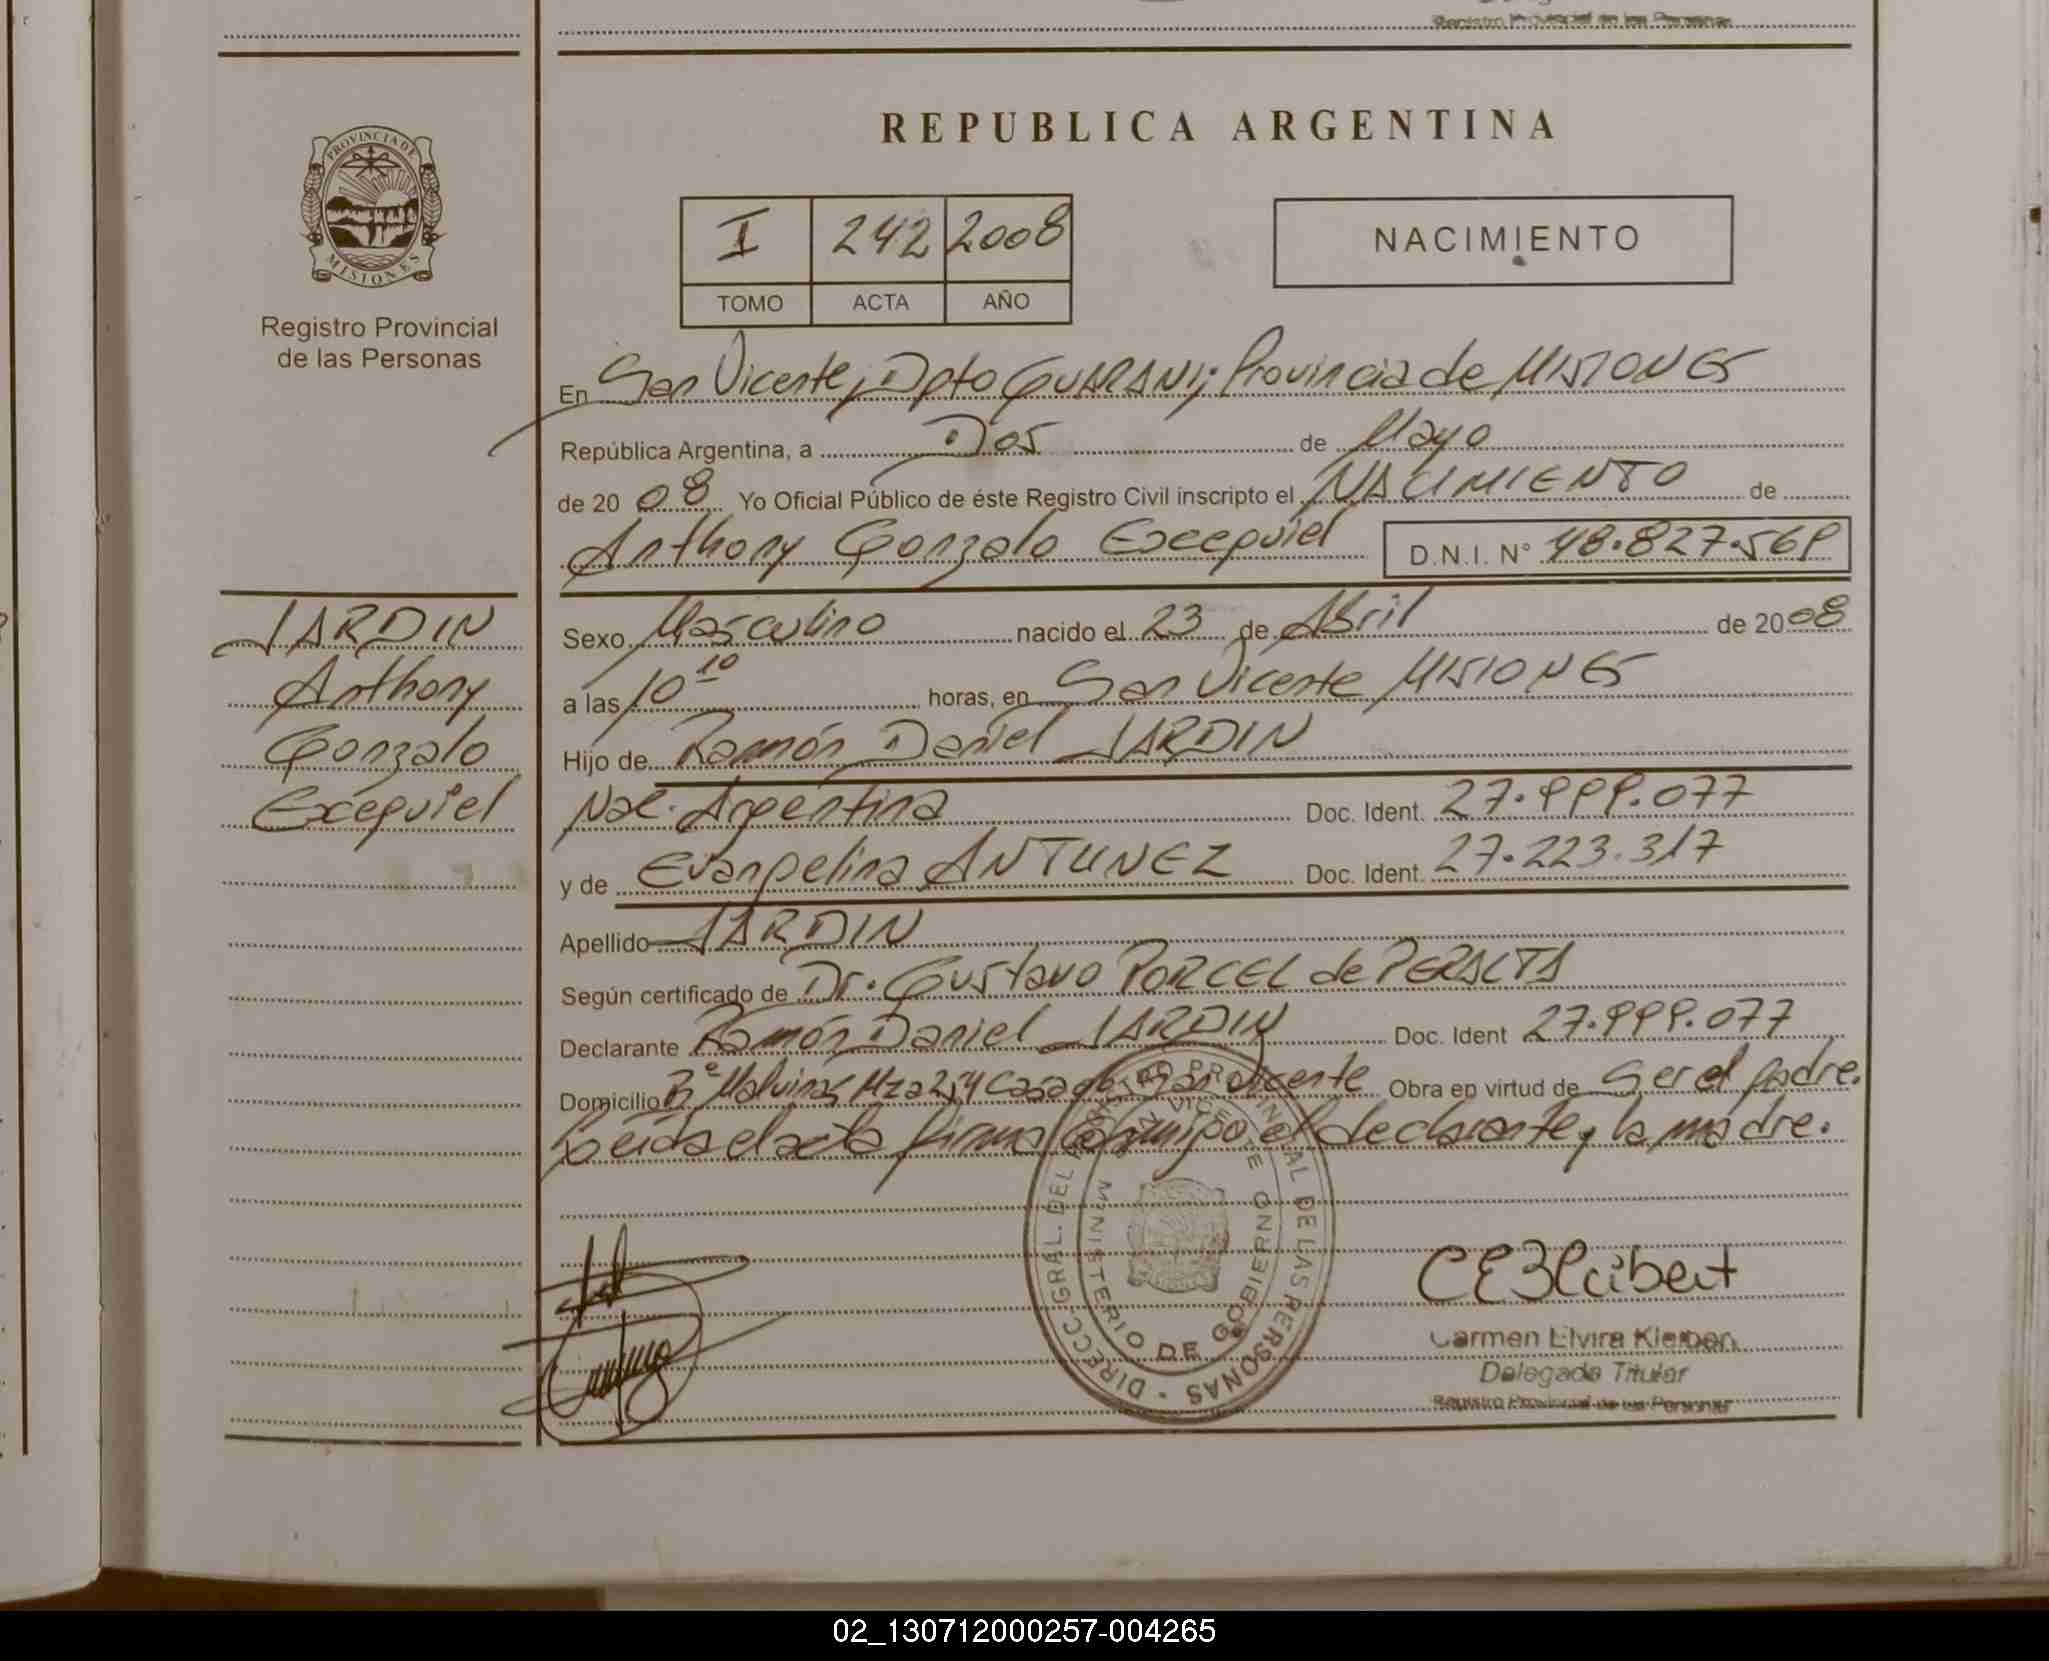 Registro Provincial de las Personas
REPUBLICA ARGENTINA
PROVINCIA DE
MISIONES
Registro Provincial
de las Personas
I 242 2008
TOMO ACTA AÑO
NACIMIENTO
En San Vicente, Dpto GUARANI; Provincia de MISIONES
República Argentina, a Dos de Mayo
de 20 08 Yo Oficial Público de éste Registro Civil inscripto el NACIMIENTO de
Anthony Gonzalo Exequiel D.N.I. N° 48.827.569
JARDIN
Anthony
Gonzalo
Exequiel
Sexo Masculino nacido el 23 de Abril de 2008
a las 10 10 horas, en San Vicente MISIONES
Hijo de Ramón Daniel JARDIN
Nac. Argentina Doc. Ident. 27.999.077
y de Evangelina ANTUNEZ Doc. Ident. 27.223.317
Apellido JARDIN
Según certificado de Dr. Gustavo PORCEL de PERALTA
Declarante Ramón Daniel JARDIN Doc. Ident 27.999.077
Domicilio B° Malvinas Mza 254 Casa San Vicente Obra en virtud de Ser el padre.
Leida el acta firma conmigo el declarante y la madre.
DIRECC. GRAL. DEL REGISTRO PROVINCIAL DE LAS PERSONAS
SAN VICENTE
MINISTERIO DE GOBIERNO
Carmen Elvira Kleiben
Delegada Titular
Registro Provincial de las Personas
02_130712000257-004265